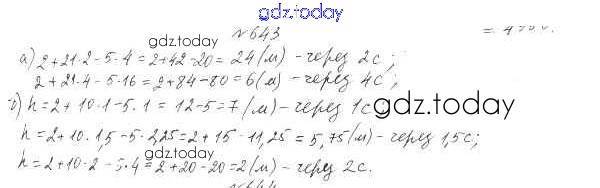 gdz.today
№643
а) 2+21·2-5·4=2+42-20=24(м) - через 2с;
gdz.today
2+21·4-5·16=2+84-80=6(м) - через 4с;
б) h=2+10·1-5·1=12-5=7(м) - через 1с;
gdz.today
h=2+10·1,5-5·2,25=2+15-11,25=5,75(м) - через 1,5с;
gdz.today
h=2+10·2-5·4=2+20-20=2(м) - через 2с.
№644